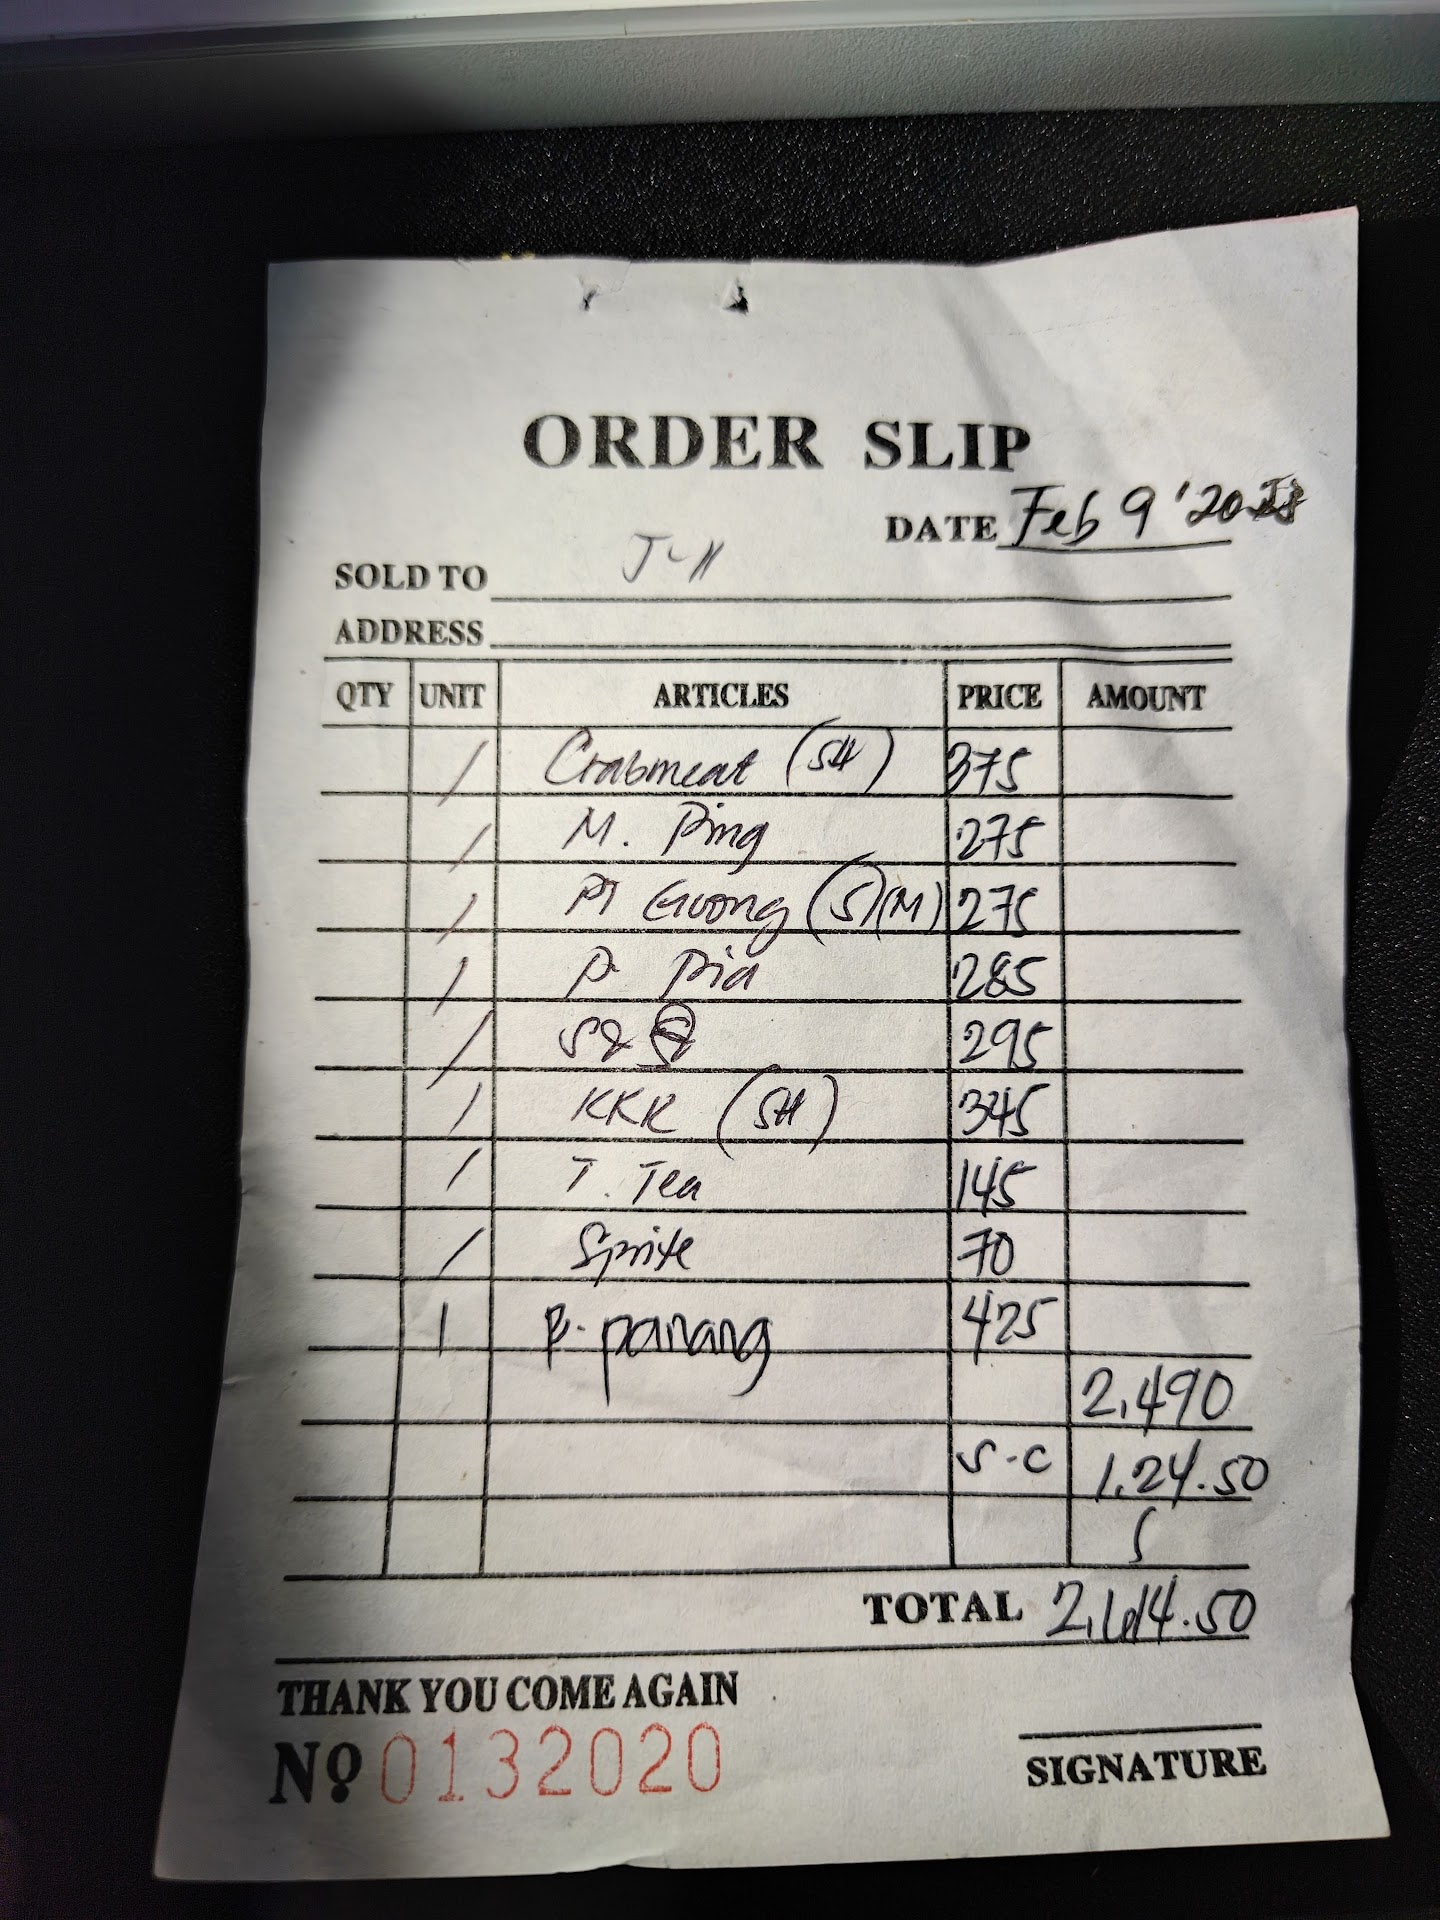 ORDER SLIP
DATE Feb 9 '20
SOLD TO J-11
ADDRESS
QTY UNIT ARTICLES PRICE AMOUNT
1 Crabmeat (SH) 375
1 M. Ping 275
1 Guong (S)(M) 275
1 P. Pia 285
1 295
1 KKR (SH) 345
1 T. Tea 145
1 Sprite 70
1 P. panang 425
2,490
S-C 1,24.50
TOTAL 2,614.50
THANK YOU COME AGAIN
Nº 0132020
SIGNATURE